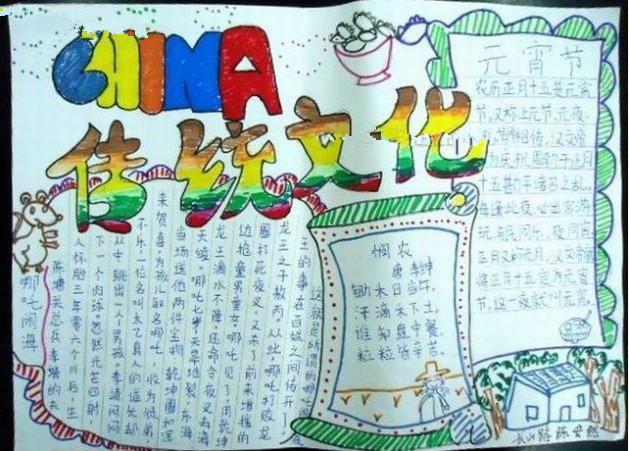 CHINA
传统文化
元宵节
农历正月十五是元宵
节,又称上元节,元夜、
相传,汉文帝
为庆祝周勃于正月
十五勘平诸吕之乱,
每逢此夜,必出宫游
玩,与民同乐,夜同宵
正月又称元月,汉文帝就
将正月十五定为元宵
节,这一夜就叫元宵。
悯农
唐 李绅
锄禾日当午,
汗滴禾下土。
谁知盘中餐,
粒粒皆辛苦。
哪吒闹海
陈塘关总兵李靖的夫
人怀胎三年零六个月后,生
下一个肉球,忽然光芒四射,
从中跳出一个男孩。李靖闷闷
不乐,一位名叫太乙真人的道长却
来贺喜,为孩儿取名哪吒,收为徒弟
当场送他两件宝物:乾坤圈和混
天绫。哪吒七岁,天旱地裂,东海
龙王滴水不降,还命令夜叉去海
边抢童男童女。哪吒见了,用乾坤
圈打死夜叉,又杀了前来增援的
龙王之子敖丙。从此,哪吒打败龙
王的事,在百姓之间传开。
这就是所谓的哪吒
长山路 陈安然